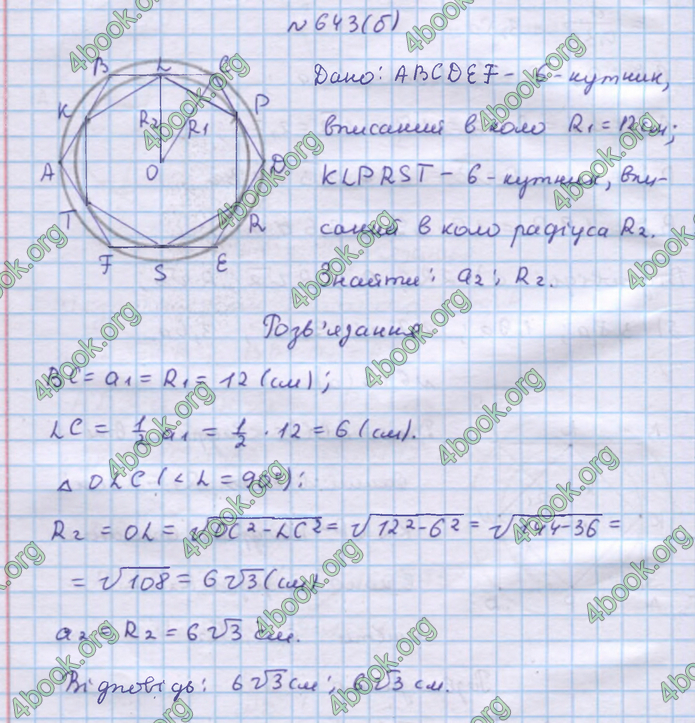 № 643(б)
Дано: ABCDEF - 6-кутник,
вписаний в коло R₁ = 12 см;
KLPRST - 6-кутник, впи-
саний в коло радіуса R₂.
Знайти: a₂; R₂.
B L C
K P
R₂ R₁
A O D
T R
F S E
Розв'язання
BC = a₁ = R₁ = 12 (см);
LC = 1/2 a₁ = 1/2 · 12 = 6 (см).
△ OLC (∠L = 90°):
R₂ = OL = √(OC² - LC²) = √(12² - 6²) = √(144 - 36) =
= √108 = 6√3 (см)
a₂ = R₂ = 6√3 см.
Відповідь: 6√3 см; 6√3 см.
4book.org